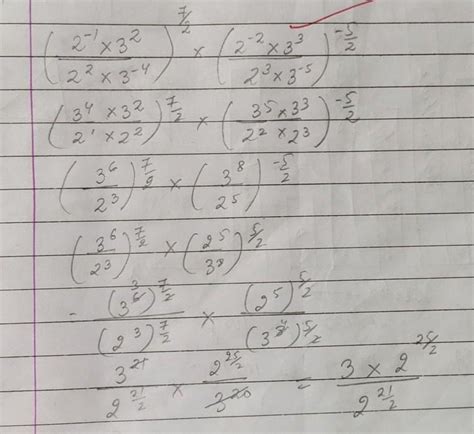 (2⁻¹ × 3² / 2² × 3⁻⁴)^(7/2) × (2⁻² × 3³ / 2³ × 3⁻⁵)^(-5/2)
(3⁴ × 3² / 2¹ × 2²)^(7/2) × (3⁵ × 3³ / 2² × 2³)^(-5/2)
(3⁶ / 2³)^(7/2) × (3⁸ / 2⁵)^(-5/2)
(3⁶ / 2³)^(7/2) × (2⁵ / 3⁸)^(5/2)
= (3⁶)^(7/2) / (2³)^(7/2) × (2⁵)^(5/2) / (3⁸)^(5/2)
3²¹ / 2^(21/2) × 2^(25/2) / 3²⁰ = 3 × 2^(25/2) / 2^(21/2)